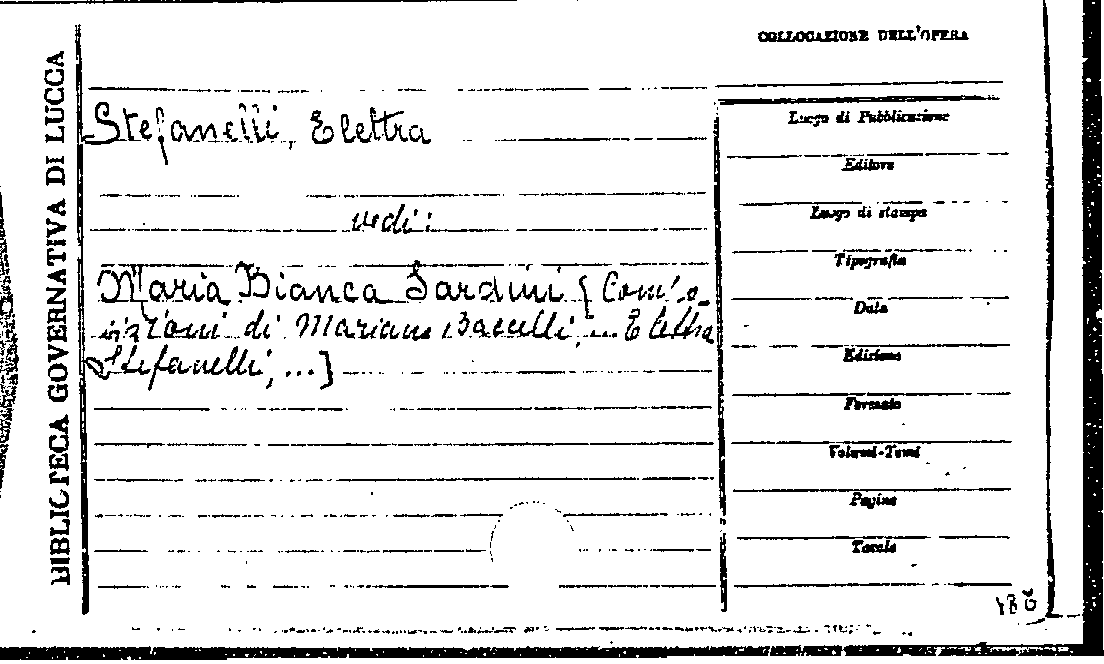 COLLOCAZIONE DELL'OPERA
BIBLIOTECA GOVERNATIVA DI LUCCA
Stefanelli, Elettra
vedi:
Maria Bianca Sardini [Compo-
sizioni di Mariano Baccelli, ... Elettra
Stefanelli, ...]
Luogo di Pubblicazione
Editore
Luogo di stampa
Tipografia
Data
Edizione
Formato
Volumi-Tomi
Pagine
Tavole